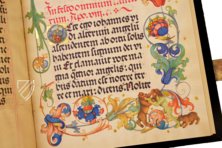 In festo omnium sanc
torum. Apo. vii.
Et ego iohannes vi
di alterum angelu
ascendentem ab ortu solis
habentem signum dei vi
ui Et clamauit voce ma
gna angelis: qui
bus datum est nocere ter
re et mari: dicens. Nolite